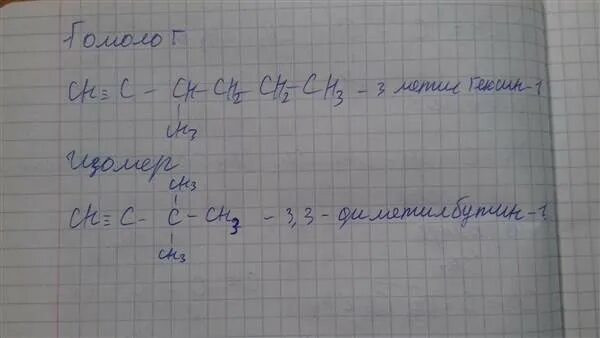 Гомолог
CH≡C-CH-CH2-CH2-CH3 - 3 метилгексин-1
CH3
Изомер
CH3
CH≡C-C-CH3 - 3,3-диметилбутин-1
CH3